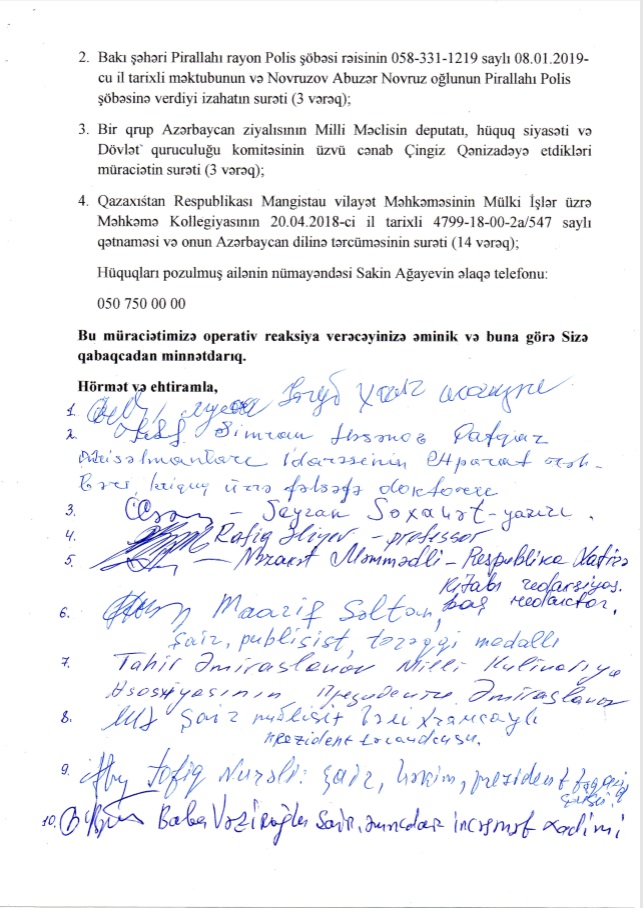 2. Bakı şəhəri Pirallahı rayon Polis şöbəsi rəisinin 058-331-1219 saylı 08.01.2019-
cu il tarixli məktubunun və Novruzov Abuzər Novruz oğlunun Pirallahı Polis
şöbəsinə verdiyi izahatın surəti (3 vərəq);
3. Bir qrup Azərbaycan ziyalısının Milli Məclisin deputatı, hüquq siyasəti və
Dövlət quruculuğu komitəsinin üzvü cənab Çingiz Qənizadəyə etdikləri
müraciətin surəti (3 vərəq);
4. Qazaxıstan Respublikası Mangistau vilayət Məhkəməsinin Mülki İşlər üzrə
Məhkəmə Kollegiyasının 20.04.2018-ci il tarixli 4799-18-00-2a/547 saylı
qətnaməsi və onun Azərbaycan dilinə tərcüməsinin surəti (14 vərəq);
Hüquqları pozulmuş ailənin nümayəndəsi Sakin Ağayevin əlaqə telefonu:
050 750 00 00
Bu müraciətimizə operativ reaksiya verəcəyinizə əminik və buna görə Sizə
qabaqcadan minnətdarıq.
Hörmət və ehtiramla,
1.
2. Simran Həsənov Qafqaz
Müsəlmanları İdarəsinin Aparat rəh-
bəri, üzrə fəlsəfə doktoru
3. – Seyran Səxavət – yazıçı.
4. Rafiq Əliyev – professor
5. – Nəzakət Məmmədli – Respublika Xatirə
Kitabı redaksiyası.
baş redaktor,
6. Maarif Soltan,
şair, publisist, tərəqqi medallı
7. Tahir Əmiraslanov Milli Kulinariya
Assosiyasının Prezidenti Əmiraslanov
8. şair publisist
prezident təqaüdçüsü.
9. Tofiq Nurəli: şair, həkim, prezident təqaüdçüsü
10. Baba Vəziroğlu şair, əməkdar incəsənət xadimi